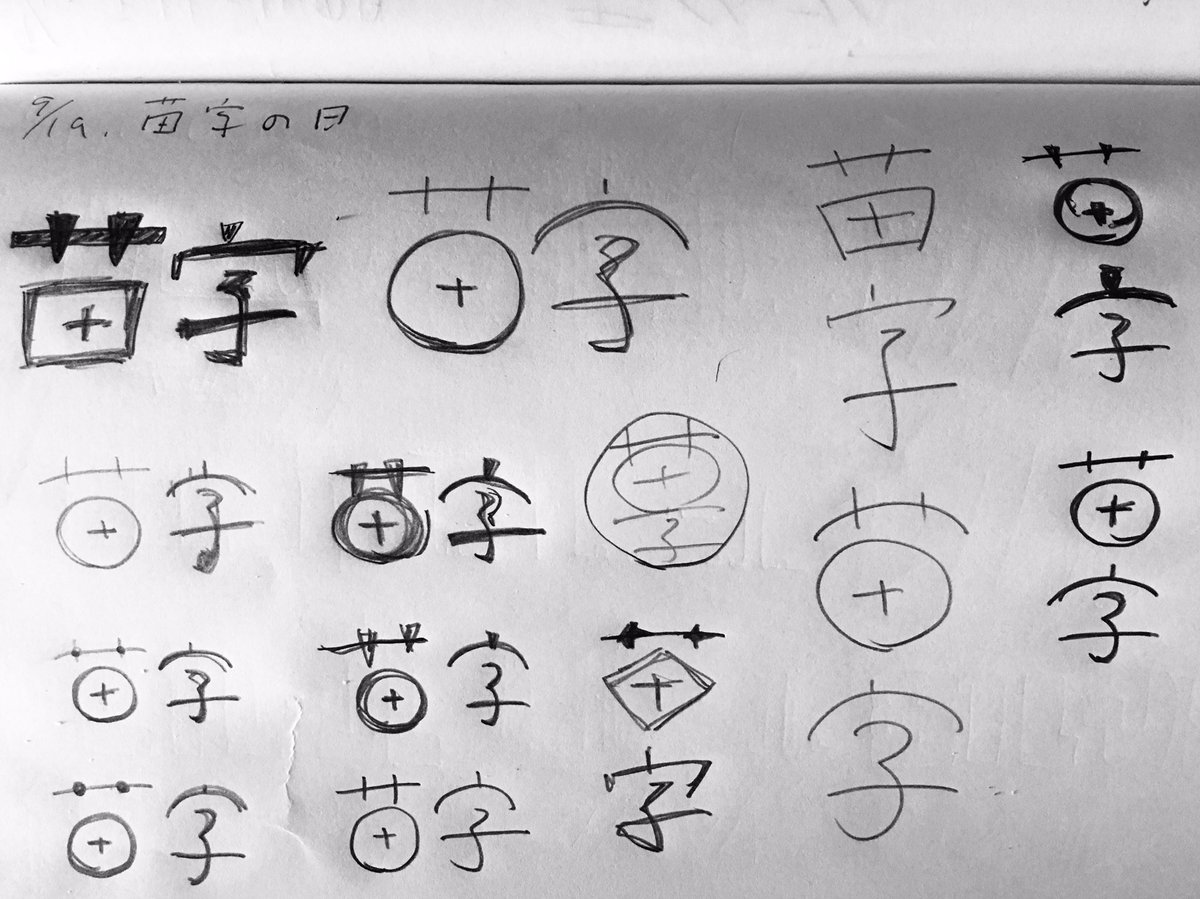 9/19. 苗字の日
苗字
苗字
苗字
苗字
苗字
苗字
苗字
苗字
苗字
苗字
苗字
苗字
苗字
苗字